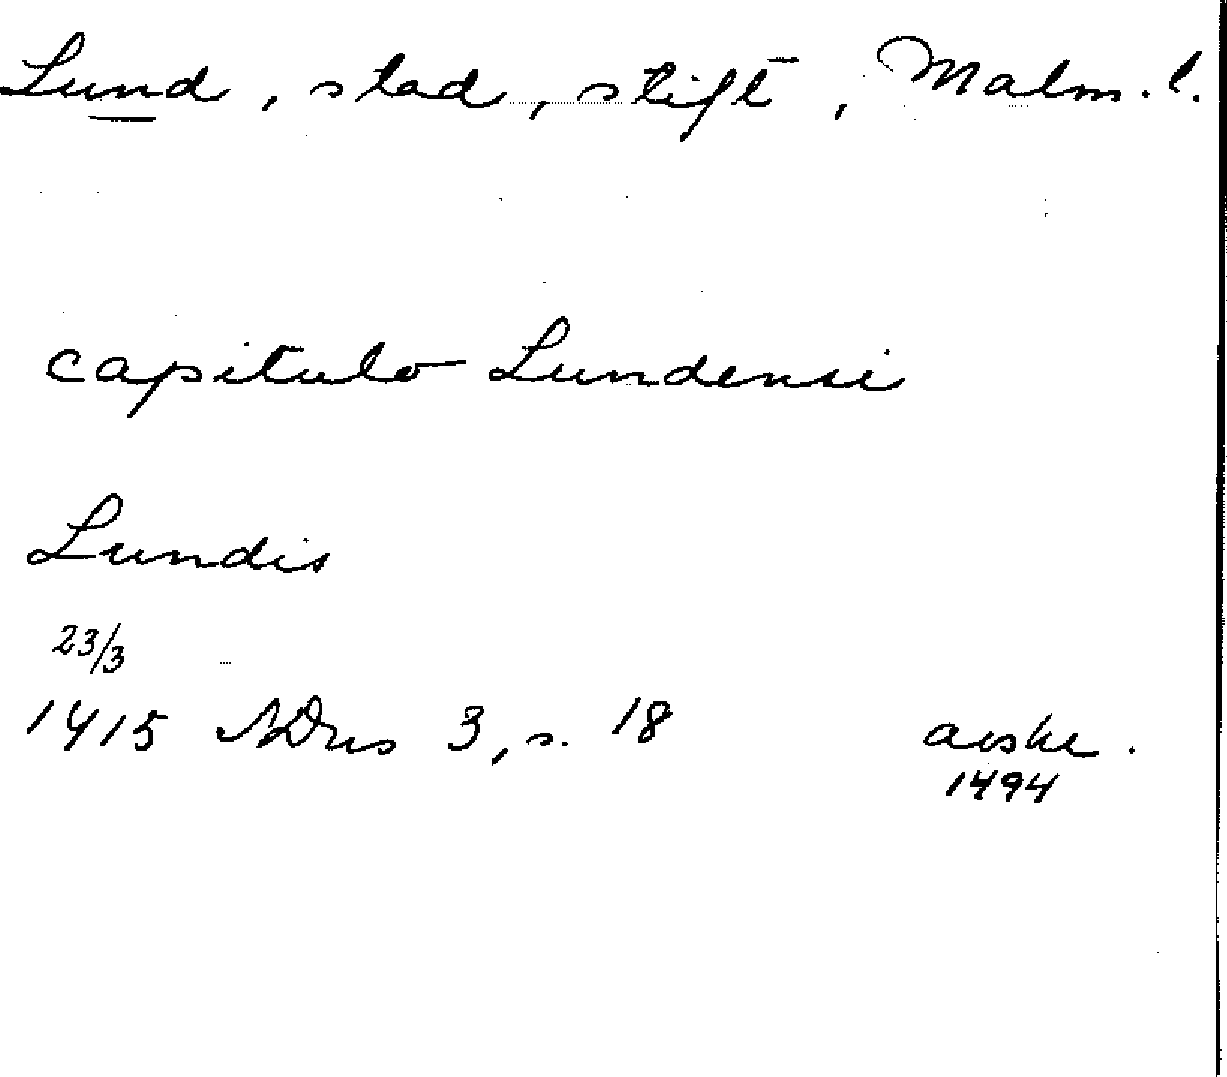 Lund, stad, stift, Malm. l.
capitulo Lundensi
Lundis
23/3
1415 NDns 3, s. 18 avskr.
1494